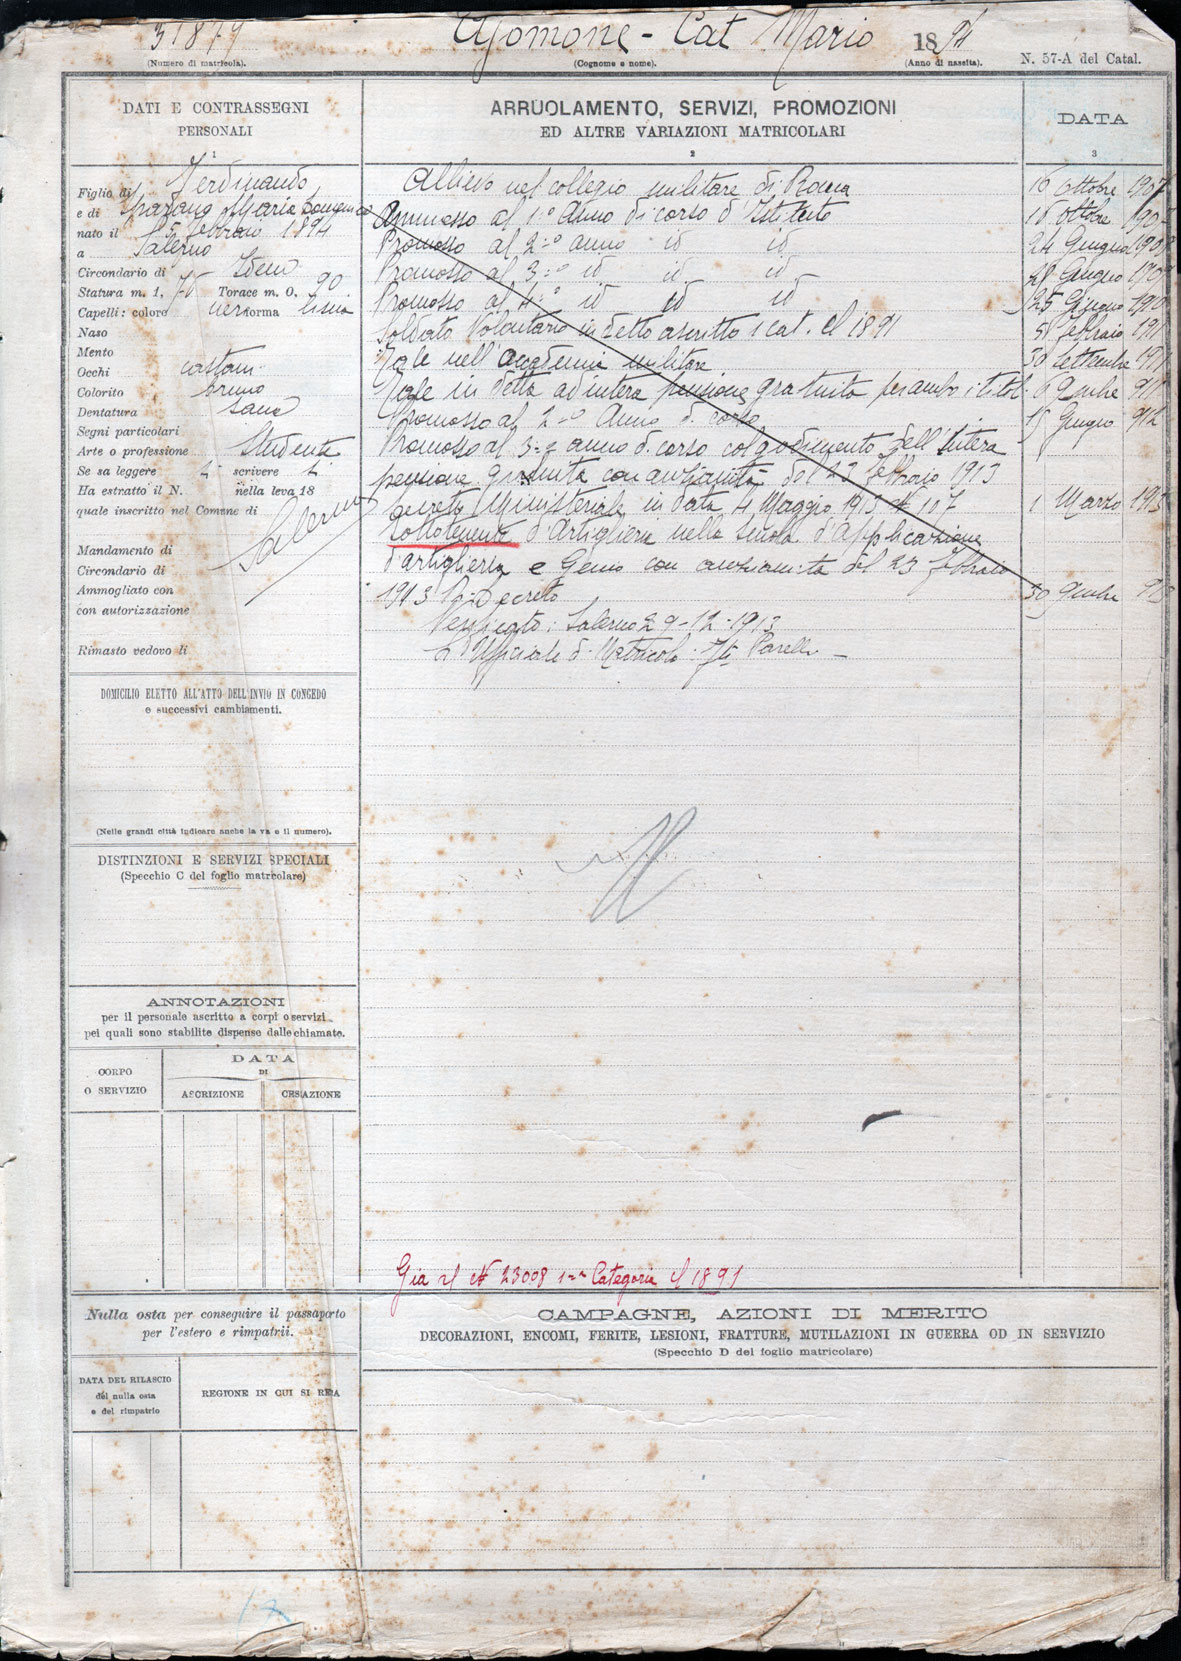 31879 Ajmone-Cat Mario 1894
(Numero di matricola). (Cognome e nome). (Anno di nascita). N. 57-A del Catal.
DATI E CONTRASSEGNI
PERSONALI
1
Figlio di Ferdinando
e di Spadano Maria Domenica
nato il 5 febbraio 1894
a Salerno
Circondario di Idem
Statura m. 1, 76 Torace m. 0, 90
Capelli: colore neri forma lisci
Naso
Mento
Occhi castani
Colorito bruno
Dentatura sana
Segni particolari
Arte o professione Studente
Se sa leggere si scrivere si
Ha estratto il N. nella leva 18
quale inscritto nel Comune di
Salerno
Mandamento di
Circondario di
Ammogliato con
con autorizzazione
Rimasto vedovo li
DOMICILIO ELETTO ALL'ATTO DELL'INVIO IN CONGEDO
e successivi cambiamenti.
(Nelle grandi città indicare anche la va e il numero).
DISTINZIONI E SERVIZI SPECIALI
(Specchio C del foglio matrcolare)
ANNOTAZIONI
per il personale ascritto a corpi o servizi
pei quali sono stabilite dispense dalle chiamate.
CORPO
O SERVIZIO
DATA
DI
ASCRIZIONE CESSAZIONE
Nulla osta per conseguire il passaporto
per l'estero e rimpatrii.
DATA DEL RILASCIO
del nulla osta
e del rimpatrio
REGIONE IN CUI SI RECA
ARRUOLAMENTO, SERVIZI, PROMOZIONI
ED ALTRE VARIAZIONI MATRICOLARI
2
DATA
3
Allievo nel collegio militare di Roma 16 ottobre 1907
Ammesso al 1º Anno di corso d'Istituto 16 ottobre 1907
Promosso al 2º anno id id 24 Giugno 1908
Promosso al 3º id id id 28 Giugno 1909
Promosso al 4º id id id 25 Giugno 1910
Soldato Volontario in detto ascritto 1 cat. cl 1891 5 febbraio 1911
Tale nell'accademia militare 30 Settembre 1911
Tale in detta ad intera pensione gratuita per ambo i titol. 6 9mbre 911
Promosso al 2º Anno di corso 15 Giugno 912
Promosso al 3º anno di corso col godimento dell'intera
pensione gratuita con anzianità del 23 febbraio 1913
decreto Ministeriale in data 4 Maggio 1913 N 107 1 Marzo 1913
Sottotenente d'Artiglieria nella Scuola d'applicazione
d'artiglieria e Genio con anzianità del 23 febbraio
1913 Rº Decreto 30 9mbre 913
Verificato: Salerno 29-12-1913
L'Ufficiale di Matricola
Già al N 23008 1ª Categoria cl 1891
CAMPAGNE, AZIONI DI MERITO
DECORAZIONI, ENCOMI, FERITE, LESIONI, FRATTURE, MUTILAZIONI IN GUERRA OD IN SERVIZIO
(Specchio D del foglio matricolare)